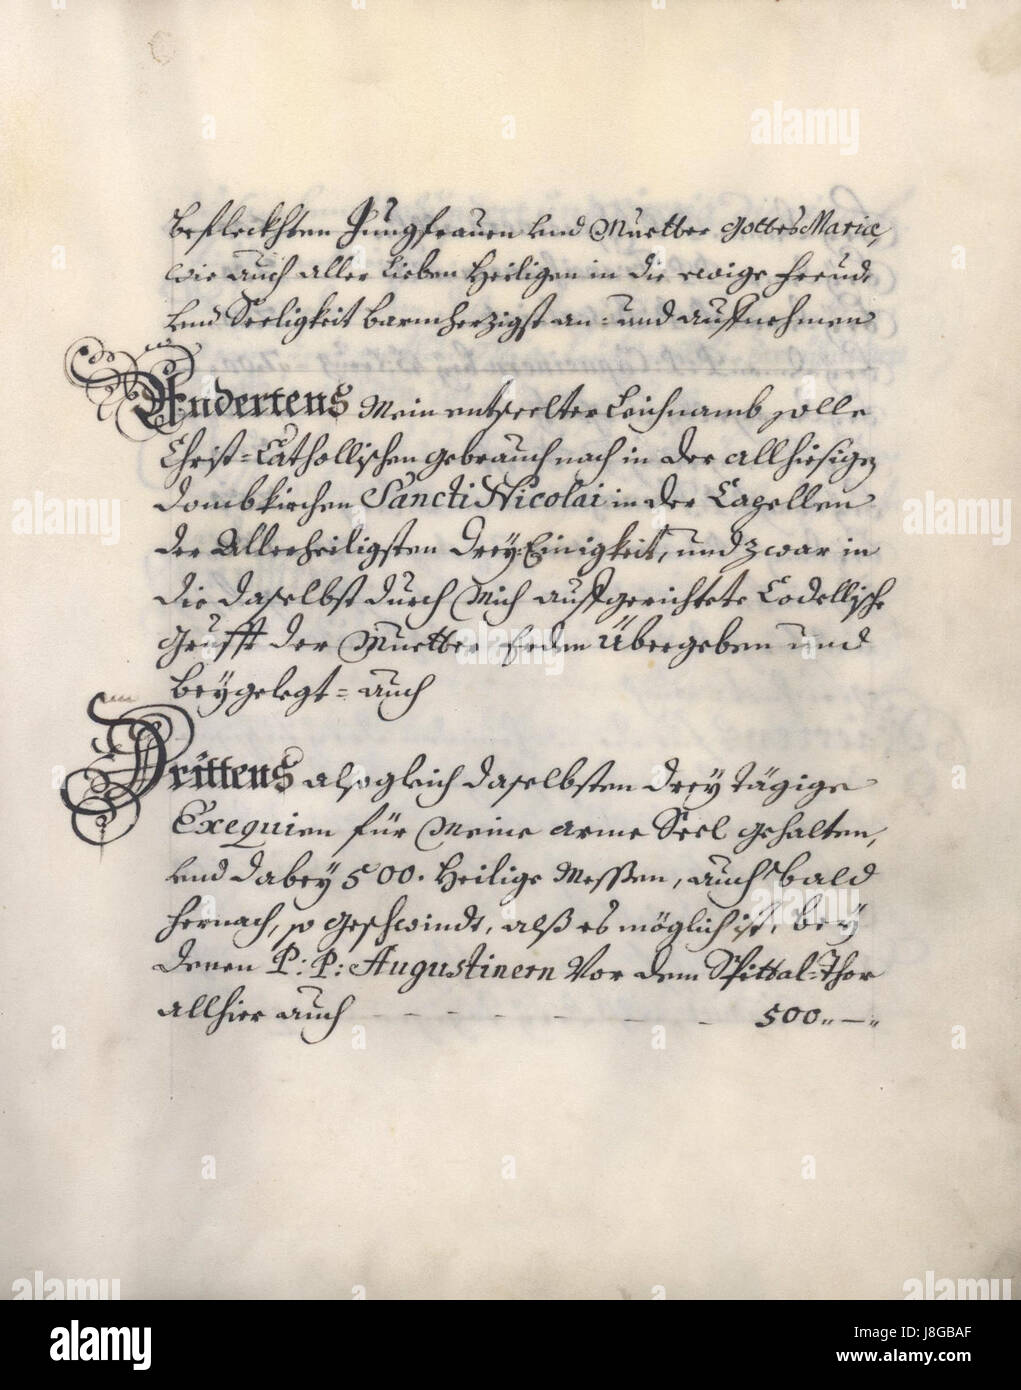 befleckhten Jungfrauen und Muetter Gottes Mariæ,
wie auch aller Lieben Heiligen in die ewige Freud,
und Seeligkeit barmherzigst an- und aufnehmen
Andertens Mein entseelter Leichnamb solle
Christ=Catholischen gebrauch nach in der allhiesigen
Dombkirchen Sancti Nicolai in der Capellen
der Allerheiligsten Drey=Einigkeit, und zwar in
die daselbst durch Mich aufgerichtete Codellische
Grufft der Muetter Erden Übergeben und
beygelegt= auch
Drittens alsogleich daselbsten drey tägige
Exequien für Meine arme Seel gehalten,
und dabey 500. Heilige Messen, auch bald
hernach, so geschwindt, alß es möglich ist, bey
denen P: P: Augustinern Vor dem Spittal=Thor
allhier auch - - - - - - - 500,,—,,
alamy
Image ID: J8GBAF
www.alamy.com